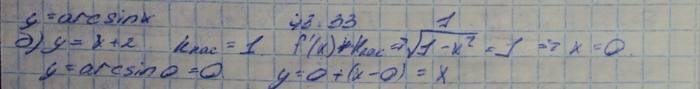 y = arcsin x 43.33
б) y = x + 2 kкас = 1 f'(x) = kкас => 1/√(1 - x²) = 1 => x = 0
y = arcsin 0 = 0 y = 0 + (x - 0) = x